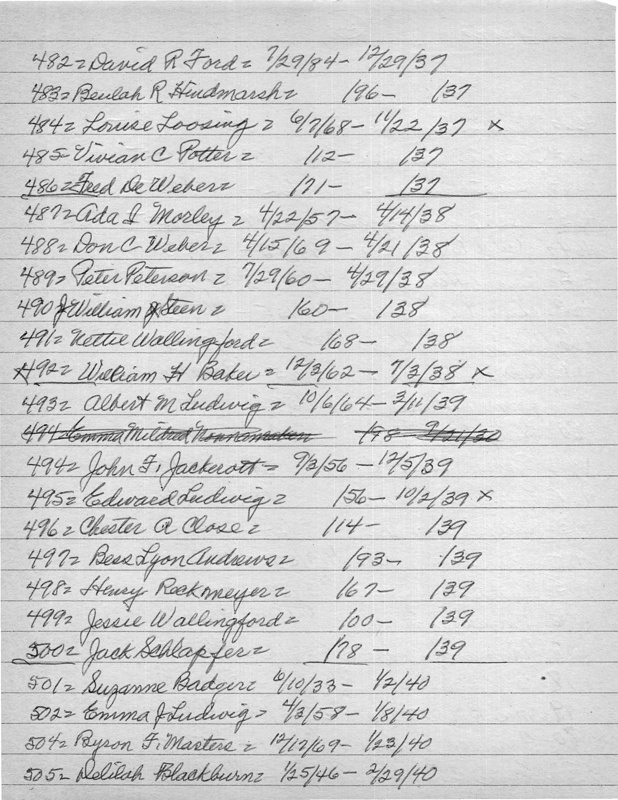 482 = David R Ford = 7/29/84 - 12/29/37
483 = Beulah R Hindmarsh = /96 - /37
484 = Louise Loosing = 6/7/68 - 11/22/37 x
485 = Vivian C Potter = /12 - /37
486 = Fred De Weber = /71 - /37
487 = Ada I Morley = 4/22/57 - 4/14/38
488 = Don C Weber = 4/15/69 - 4/21/38
489 = Peter Peterson = 7/29/60 - 4/29/38
490 J William Steen = /60 - /38
491 = Nettie Wallingford = /68 - /38
x 492 = William H Baker = 12/3/62 - 7/3/38 x
493 = Albert M Ludwig = 10/6/64 - 3/11/39
494 Emma Mildred /98 9/21/20
494 = John F. Jackerott = 9/3/56 - 12/5/39
495 = Edward Ludwig = /56 - 10/2/39 x
496 = Chester A Close = /14 - /39
497 = Bess Lyon Andrews = /93 - /39
498 = Henry Rockmeyer = /67 - /39
499 = Jessie Wallingford = /00 - /39
500 = Jack Schlapfer = /78 - /39
501 = Suzanne Badger = 6/10/33 - 1/2/40
502 = Emma J Ludwig = 4/3/58 - 1/8/40
504 = Byron F. Masters = 12/12/69 - 1/23/40
505 = Delilah Blackburn = 1/25/46 - 2/29/40